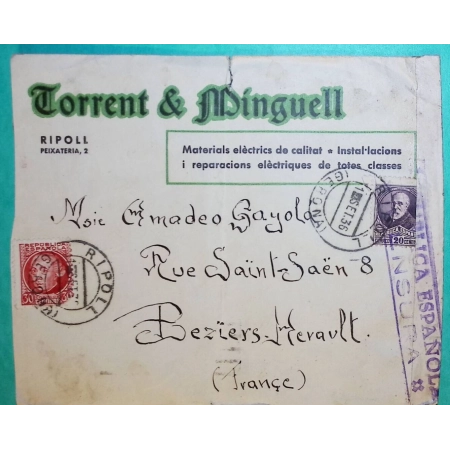 Torrent & Minguell
RIPOLL
PEIXATERIA, 2
Materials elèctrics de calitat * Instal·lacions
i reparacions elèctriques de totes classes
Msie Amadeo Gayola
Rue Saint-Saën 8
Beziers-Herault.
(France)
RIPOLL
(GERONA)
SET.36
20
30
RIPOLL
ESPAÑOLA
CENSURA